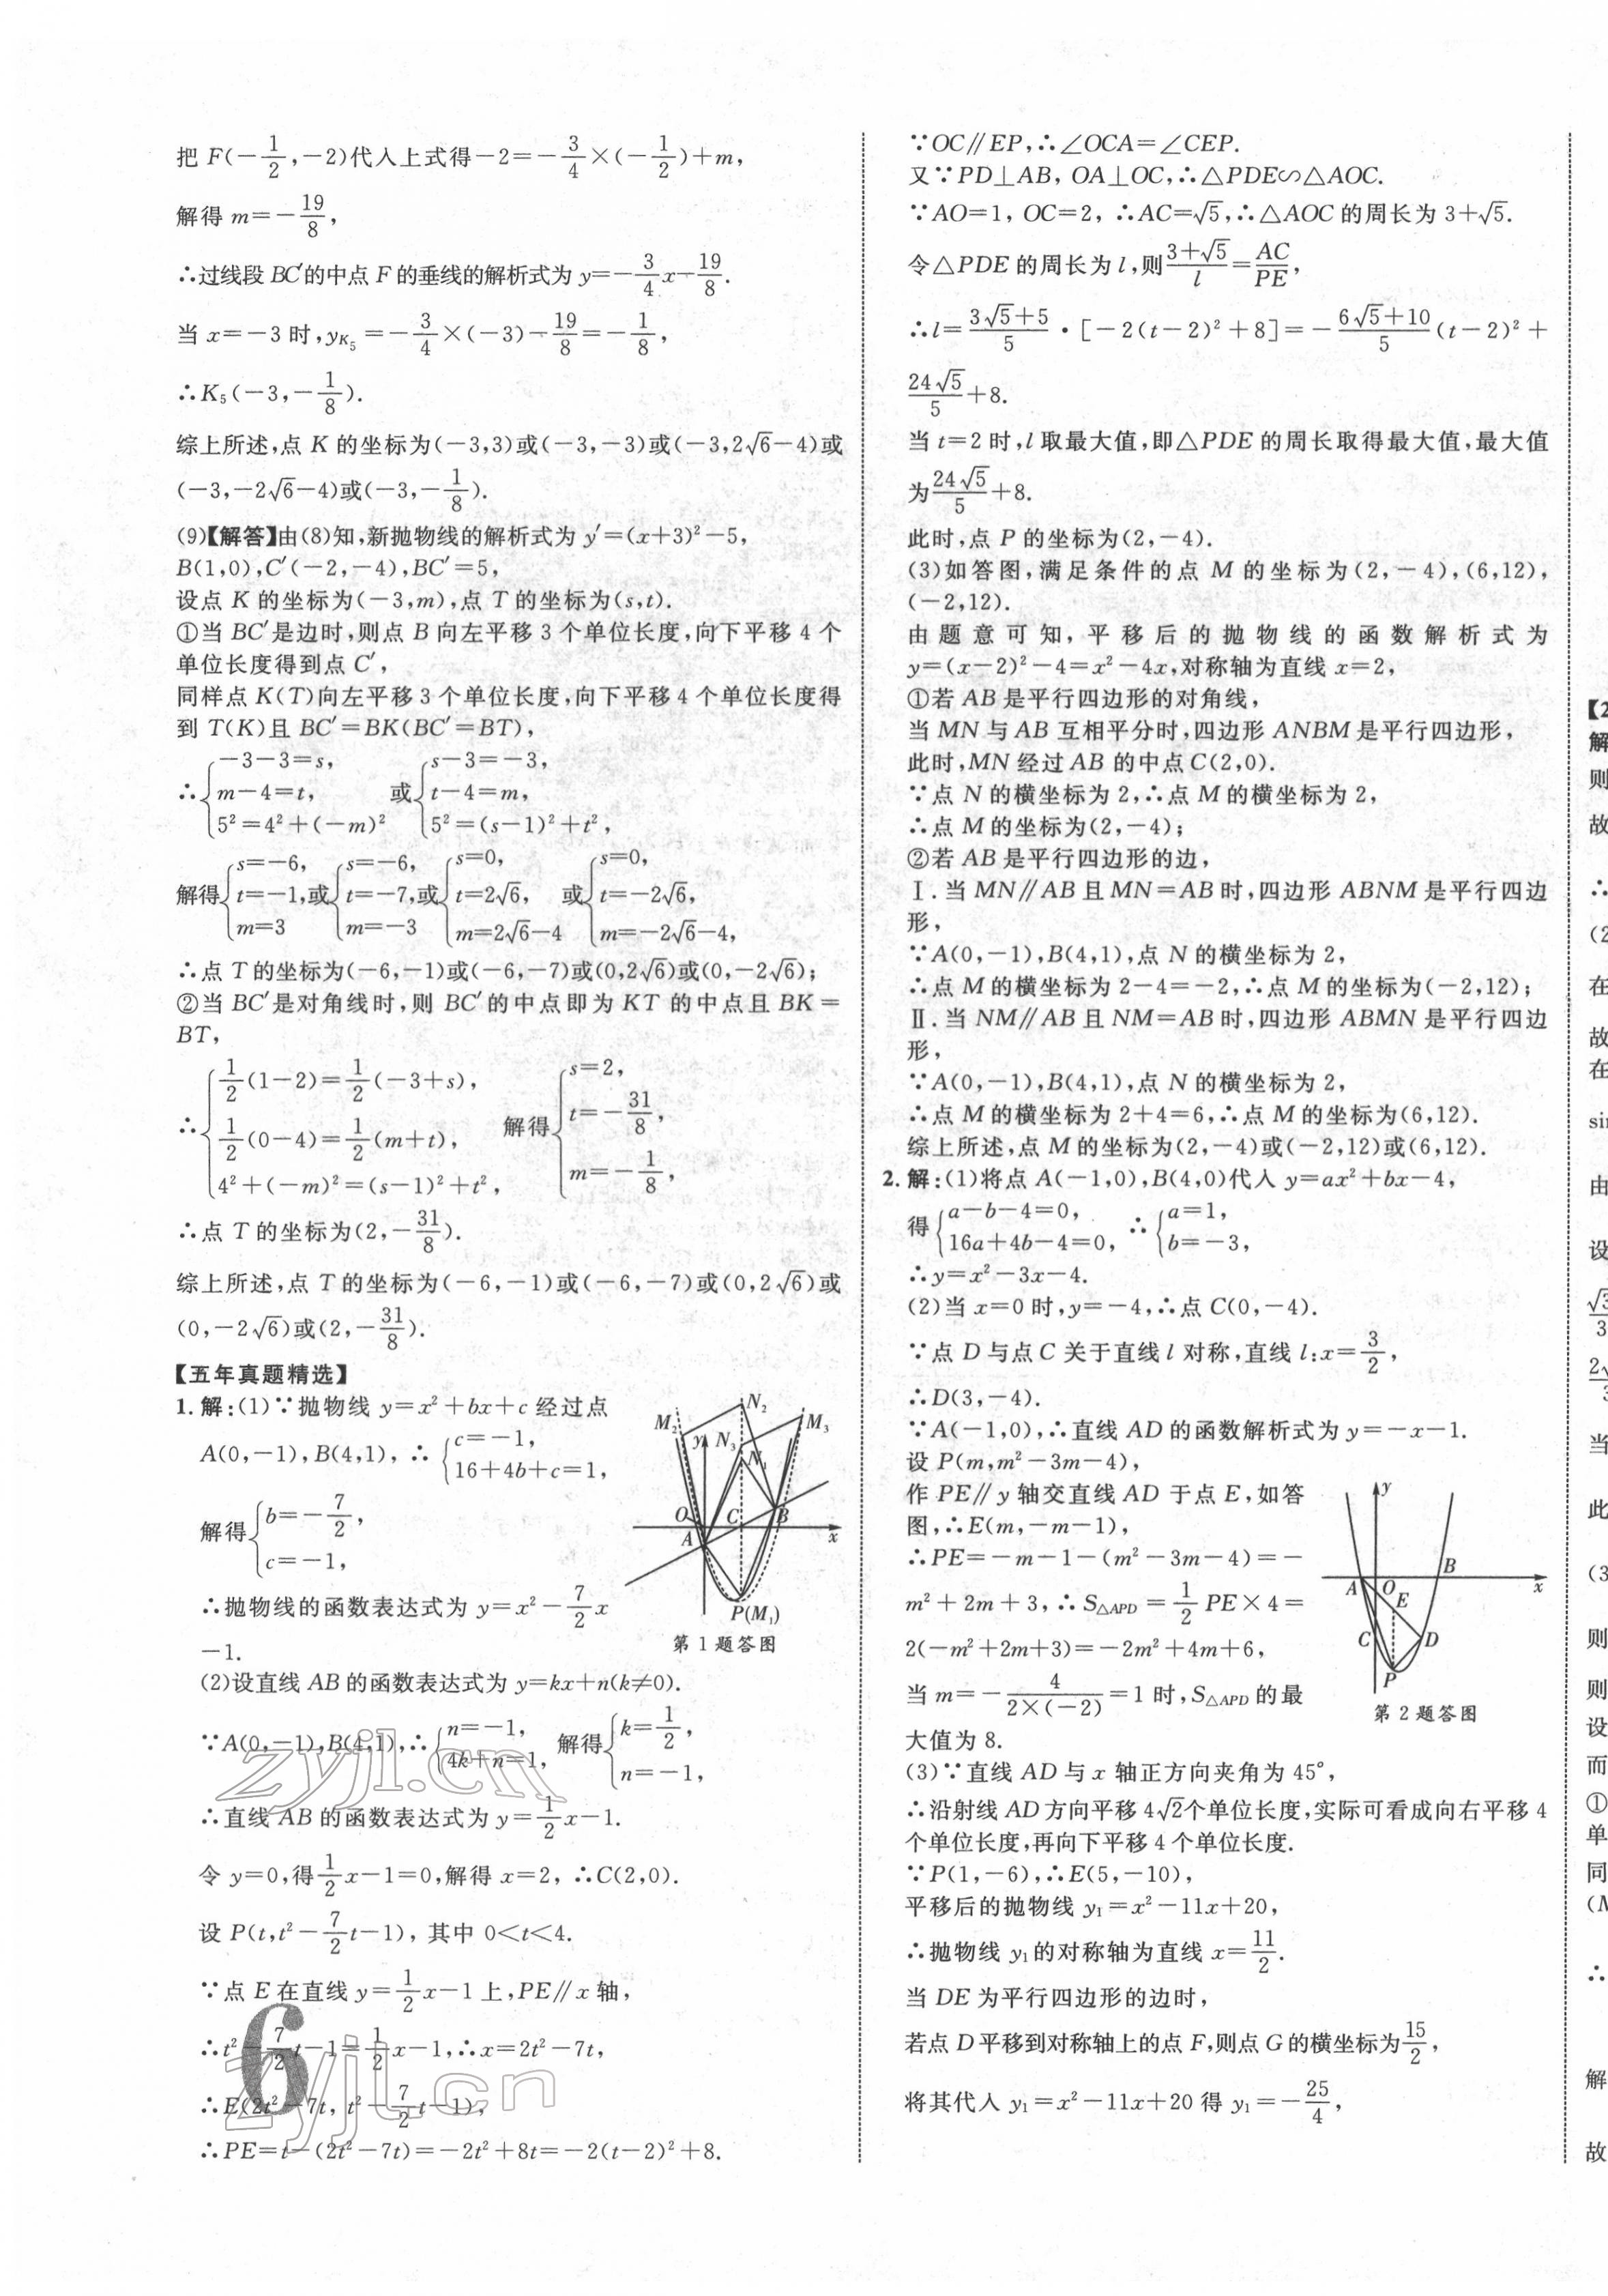 把 F(−1/2,−2)代入上式得−2=−3/4×(−1/2)+m,
解得 m=−19/8,
∴过线段 BC′的中点 F 的垂线的解析式为 y=−3/4x−19/8.
当 x=−3 时,yK₅=−3/4×(−3)−19/8=−1/8,
∴K₅(−3,−1/8).
综上所述,点 K 的坐标为(−3,3)或(−3,−3)或(−3,2√6−4)或
(−3,−2√6−4)或(−3,−1/8).
(9)【解答】由(8)知,新抛物线的解析式为 y′=(x+3)²−5,
B(1,0),C′(−2,−4),BC′=5,
设点 K 的坐标为(−3,m),点 T 的坐标为(s,t).
①当 BC′是边时,则点 B 向左平移 3 个单位长度,向下平移 4 个
单位长度得到点 C′,
同样点 K(T)向左平移 3 个单位长度,向下平移 4 个单位长度得
到 T(K)且 BC′=BK(BC′=BT),
∴{−3−3=s, m−4=t, 5²=4²+(−m)² 或{s−3=−3, t−4=m, 5²=(s−1)²+t²,
解得{s=−6, t=−1, m=3 或{s=−6, t=−7, m=−3 或{s=0, t=2√6, m=2√6−4 或{s=0, t=−2√6, m=−2√6−4,
∴点 T 的坐标为(−6,−1)或(−6,−7)或(0,2√6)或(0,−2√6);
②当 BC′是对角线时,则 BC′的中点即为 KT 的中点且 BK=
BT,
∴{1/2(1−2)=1/2(−3+s), 1/2(0−4)=1/2(m+t), 4²+(−m)²=(s−1)²+t², 解得{s=2, t=−31/8, m=−1/8,
∴点 T 的坐标为(2,−31/8).
综上所述,点 T 的坐标为(−6,−1)或(−6,−7)或(0,2√6)或
(0,−2√6)或(2,−31/8).
【五年真题精选】
1. 解:(1)∵抛物线 y=x²+bx+c 经过点
A(0,−1),B(4,1),∴{c=−1, 16+4b+c=1,
解得{b=−7/2, c=−1,
∴抛物线的函数表达式为 y=x²−7/2x
−1.
M₂ N₂ M₃
y N₃
N₁
O C B
A x
P(M₁)
第 1 题答图
(2)设直线 AB 的函数表达式为 y=kx+n(k≠0).
∵A(0,−1),B(4,1),∴{n=−1, 4k+n=1, 解得{k=1/2, n=−1,
∴直线 AB 的函数表达式为 y=1/2x−1.
令 y=0,得1/2x−1=0,解得 x=2,∴C(2,0).
设 P(t,t²−7/2t−1),其中 0<t<4.
∵点 E 在直线 y=1/2x−1 上,PE∥x 轴,
∴t²−7/2t−1=1/2x−1,∴x=2t²−7t,
∴E(2t²−7t,t²−7/2t−1),
∴PE=t−(2t²−7t)=−2t²+8t=−2(t−2)²+8.
zyjl.cn
zyjl.cn
6
∵OC∥EP,∴∠OCA=∠CEP.
又∵PD⊥AB,OA⊥OC,∴△PDE∽△AOC.
∵AO=1,OC=2,∴AC=√5,∴△AOC 的周长为 3+√5.
令△PDE 的周长为 l,则(3+√5)/l=AC/PE,
∴l=(3√5+5)/5·[−2(t−2)²+8]=−(6√5+10)/5(t−2)²+
24√5/5+8.
当 t=2 时,l 取最大值,即△PDE 的周长取得最大值,最大值
为24√5/5+8.
此时,点 P 的坐标为(2,−4).
(3)如答图,满足条件的点 M 的坐标为(2,−4),(6,12),
(−2,12).
由题意可知,平移后的抛物线的函数解析式为
y=(x−2)²−4=x²−4x,对称轴为直线 x=2,
①若 AB 是平行四边形的对角线,
当 MN 与 AB 互相平分时,四边形 ANBM 是平行四边形,
此时,MN 经过 AB 的中点 C(2,0).
∵点 N 的横坐标为 2,∴点 M 的横坐标为 2,
∴点 M 的坐标为(2,−4);
②若 AB 是平行四边形的边,
Ⅰ.当 MN∥AB 且 MN=AB 时,四边形 ABNM 是平行四边
形,
∵A(0,−1),B(4,1),点 N 的横坐标为 2,
∴点 M 的横坐标为 2−4=−2,∴点 M 的坐标为(−2,12);
Ⅱ.当 NM∥AB 且 NM=AB 时,四边形 ABMN 是平行四边
形,
∵A(0,−1),B(4,1),点 N 的横坐标为 2,
∴点 M 的横坐标为 2+4=6,∴点 M 的坐标为(6,12).
综上所述,点 M 的坐标为(2,−4)或(−2,12)或(6,12).
2. 解:(1)将点 A(−1,0),B(4,0)代入 y=ax²+bx−4,
得{a−b−4=0, 16a+4b−4=0, ∴{a=1, b=−3,
∴y=x²−3x−4.
(2)当 x=0 时,y=−4,∴点 C(0,−4).
∵点 D 与点 C 关于直线 l 对称,直线 l:x=3/2,
∴D(3,−4).
∵A(−1,0),∴直线 AD 的函数解析式为 y=−x−1.
设 P(m,m²−3m−4),
作 PE∥y 轴交直线 AD 于点 E,如答
图,∴E(m,−m−1),
∴PE=−m−1−(m²−3m−4)=−
m²+2m+3,∴S△APD=1/2PE×4=
2(−m²+2m+3)=−2m²+4m+6,
当 m=−4/(2×(−2))=1 时,S△APD的最
大值为 8.
y
A O B
E x
C D
P
第 2 题答图
(3)∵直线 AD 与 x 轴正方向夹角为 45°,
∴沿射线 AD 方向平移 4√2个单位长度,实际可看成向右平移 4
个单位长度,再向下平移 4 个单位长度.
∵P(1,−6),∴E(5,−10),
平移后的抛物线 y₁=x²−11x+20,
∴抛物线 y₁的对称轴为直线 x=11/2.
当 DE 为平行四边形的边时,
若点 D 平移到对称轴上的点 F,则点 G 的横坐标为15/2,
将其代入 y₁=x²−11x+20 得 y₁=−25/4,
【2
解
则
故
∴
(2
在
故
在
sin
由
设
当
此
(3
则
则
设
而
①
单
同
∴
解
故